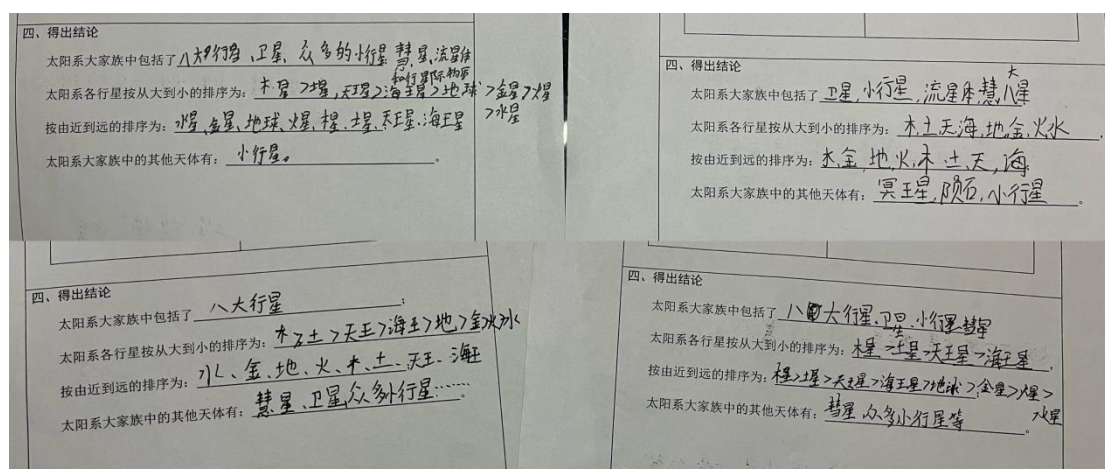 四、得出结论
太阳系大家族中包括了八大行星、卫星、众多的小行星、彗星、流星体
和行星际物质
太阳系各行星按从大到小的排序为:木星>土星>天王星>海王星>地球>金星>火星
>水星
按由近到远的排序为:水星、金星、地球、火星、木星、土星、天王星、海王星
太阳系大家族中的其他天体有:小行星。
四、得出结论
太阳系大家族中包括了卫星,小行星,流星体,慧八大星
太阳系各行星按从大到小的排序为:木,土,天,海,地,金,火,水
按由近到远的排序为:水,金,地,火,木,土,天,海
太阳系大家族中的其他天体有:冥王星,陨石,小行星。
四、得出结论
太阳系大家族中包括了八大行星;
太阳系各行星按从大到小的排序为:木>土>天王>海王>地>金>火>水
按由近到远的排序为:水、金、地、火、木、土、天王、海王
太阳系大家族中的其他天体有:慧星、卫星,众多小行星……
四、得出结论
太阳系大家族中包括了八大行星、卫星、小行星、彗星
太阳系各行星按从大到小的排序为:木星>土星>天王星>海王星
按由近到远的排序为:木星>土星>天王星>海王星>地球>金星>火星>
水星
太阳系大家族中的其他天体有:彗星,众多小行星等。